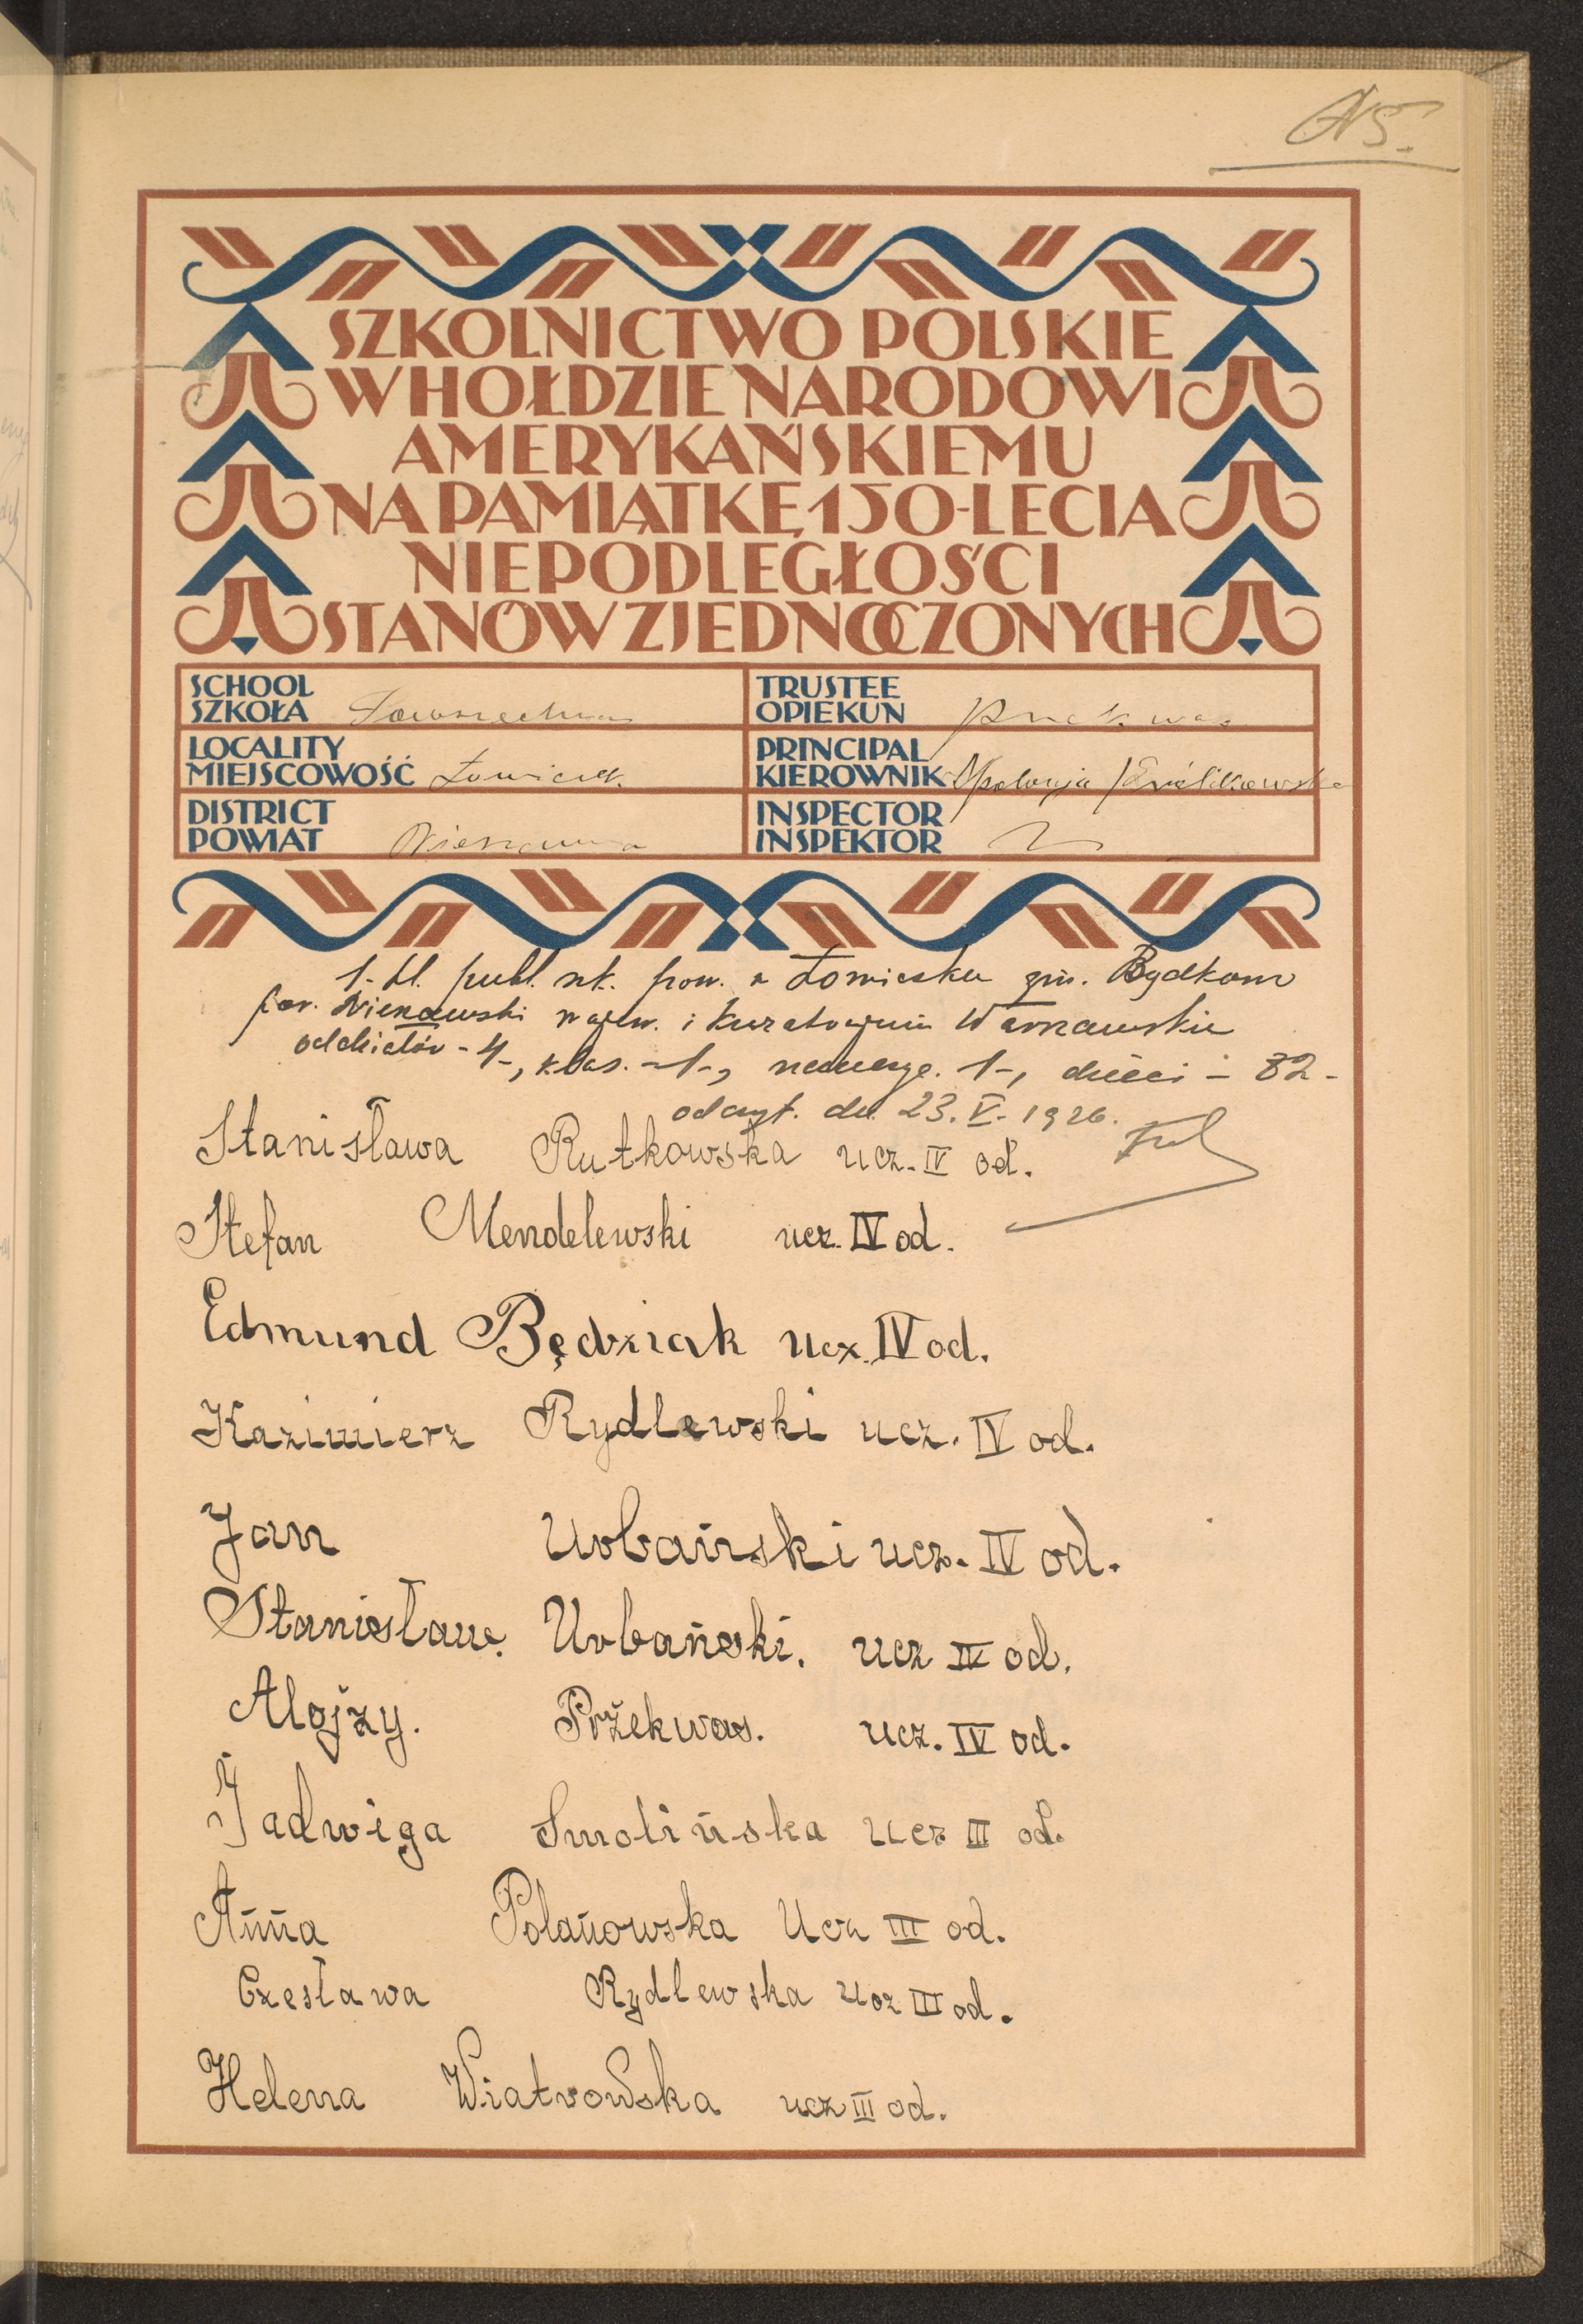 SZKOLNICTWO POLSKIE
W HOŁDZIE NARODOWI
AMERYKAŃSKIEMU
NA PAMIĄTKĘ 150-LECIA
NIEPODLEGŁOŚCI
STANÓW ZJEDNOCZONYCH
SCHOOL
SZKOŁA Powszechna
TRUSTEE
OPIEKUN
LOCALITY
MIEJSCOWOŚĆ Łowiczek
PRINCIPAL
KIEROWNIK Apolonja
DISTRICT
POWIAT Nieszawa
INSPECTOR
INSPEKTOR
1-kl. publ. szk. pow. w Łowiczku gm.
pow. Nieszawski wojew. i Kuratorjum Warszawskie
oddziałów - 4-, klas. - 1-, nauczyc. 1-, dzieci - 82 -
dn. 23. V. 1926.
Stanisława Rutkowska ucz. IV od.
Stefan Mendelewski ucz. IV od.
Edmund Będziak ucz. IV od.
Kazimierz Rydlewski ucz. IV od.
Jan Urbański ucz. IV od.
Stanisław. Urbański. ucz IV od.
Alojzy. Przekwas. ucz. IV od.
Jadwiga Smolińska ucz III od.
Anna Polanowska Ucz III od.
Czesława Rydlewska Ucz III od.
Helena Wiatrowska ucz III od.